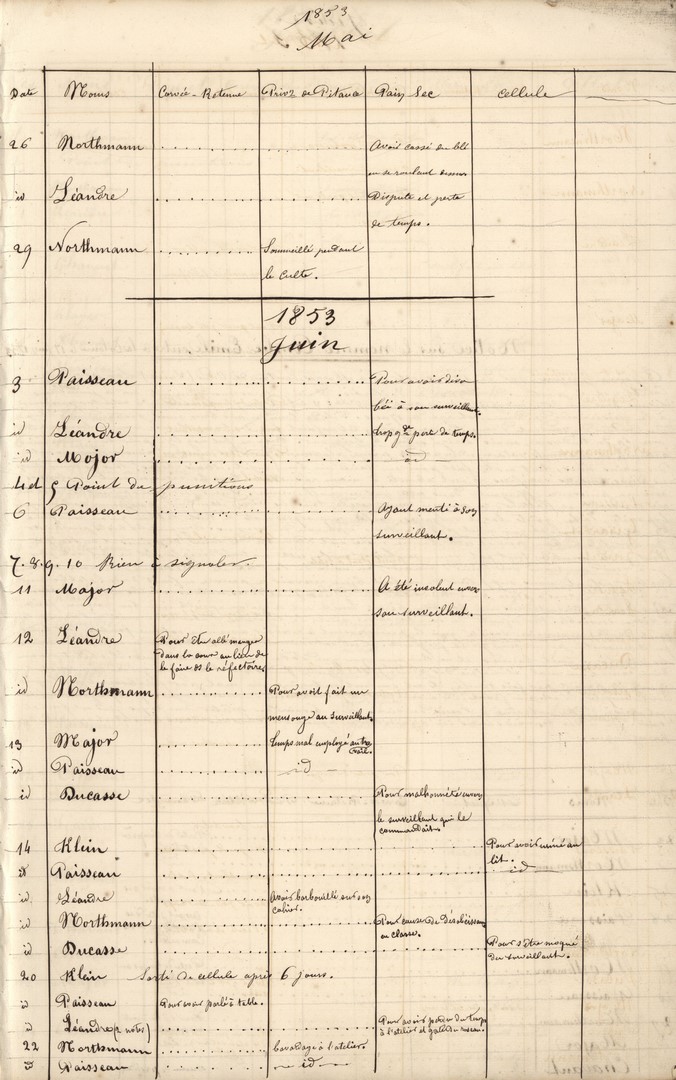 1853
Mai
Date Noms Corvée-Retenue Priv? de Pitance Pain Sec Cellule
26 Northmann Avoir cassé du blé
en se roulant dessus
id Léandre Dispute et perte
de temps.
29 Northmann Sommeillé pendant
le culte.
1853
Juin
3 Paisseau Pour avoir déso
béi à son surveillant.
id Léandre trop gde perte de temps.
id Major id
4 et 5 Point de punitions
6 Paisseau Ayant menti à son
surveillant.
7. 8. 9. 10 Rien à signaler.
11 Major A été insolent envers
son surveillant.
12 Léandre Pour être allé manger
dans la cour au lieu de
le faire ds le réfectoire.
id Northmann Pour avoir fait un
mensonge au surveillant.
13 Major temps mal employé au tra
vail.
id Paisseau id
id Ducasse Pour malhonnêteté envers
le surveillant qui le
commandait.
14 Klein Pour avoir uriné au
lit.
id Paisseau id
id Léandre Avoir barbouillé sur son
cahier.
id Northmann Pour cause de Désobéissance
en classe.
id Ducasse Pour s'être moqué
du surveillant.
20 Klein Sorti de cellule après 6 jours.
id Paisseau Pour avoir parlé à table.
id Léandre (2 notes) Pour avoir perdu du temps
à l'atelier et
22 Northmann bavardage à l'atelier.
id Paisseau id